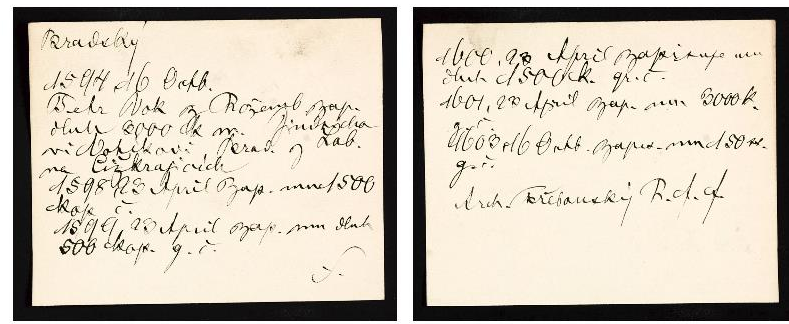 Bradský
1594, 16 Octb.
Petr Vok z Rožemb zap.
dluh 3000 k m. Jindřicho
wi Brad. z Lab.
na Čižkrajicích
1598, 23 April zap. mu 1500
kop. č.
1599, 23 April zap. mu dluh
500 kop. g. č.
1600, 23 April zapisuje mu
dluh 1500 k. gr. č.
1601, 23 April zap. mu 3000 k.
g. č.
1603, 16 Octb. zapis. mu 150
g. č.
Arch. Třeboňský R. A.